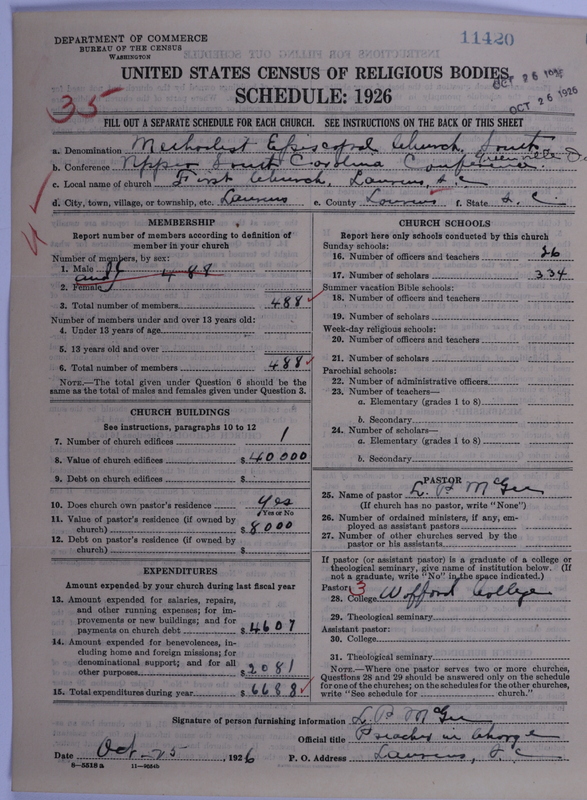 DEPARTMENT OF COMMERCE
BUREAU OF THE CENSUS
WASHINGTON
11420
UNITED STATES CENSUS OF RELIGIOUS BODIES
SCHEDULE: 1926
OCT 26 1926
OCT 26 1926
35
FILL OUT A SEPARATE SCHEDULE FOR EACH CHURCH. SEE INSTRUCTIONS ON THE BACK OF THIS SHEET
a. Denomination Methodist Episcopal Church, South
b. Conference Upper South Carolina Conference. Greenville
c. Local name of church First Church, Laurens, S. C
d. City, town, village, or township, etc. Laurens e. County Laurens f. State S. C.
4
MEMBERSHIP
Report number of members according to definition of
member in your church
Number of members, by sex:
1. Male
and 488
2. Female
3. Total number of members 488
Number of members under and over 13 years old:
4. Under 13 years of age
5. 13 years old and over
6. Total number of members 488
NOTE.—The total given under Question 6 should be the
same as the total of males and females given under Question 3.
CHURCH BUILDINGS
See instructions, paragraphs 10 to 12
7. Number of church edifices 1
8. Value of church edifices $40000
9. Debt on church edifices $
10. Does church own pastor's residence yes
(Yes or No)
11. Value of pastor's residence (if owned by
church) $8000
12. Debt on pastor's residence (if owned by
church) $
EXPENDITURES
Amount expended by your church during last fiscal year
13. Amount expended for salaries, repairs,
and other running expenses; for im-
provements or new buildings; and for
payments on church debt $4607
14. Amount expended for benevolences, in-
cluding home and foreign missions; for
denominational support; and for all
other purposes $2081
15. Total expenditures during year $6688
CHURCH SCHOOLS
Report here only schools conducted by this church
Sunday schools:
16. Number of officers and teachers 26
17. Number of scholars 334
Summer vacation Bible schools:
18. Number of officers and teachers
19. Number of scholars
Week-day religious schools:
20. Number of officers and teachers
21. Number of scholars
Parochial schools:
22. Number of administrative officers
23. Number of teachers—
a. Elementary (grades 1 to 8)
b. Secondary
24. Number of scholars—
a. Elementary (grades 1 to 8)
b. Secondary
PASTOR
25. Name of pastor L. P. McGee
(If church has no pastor, write "None")
26. Number of ordained ministers, if any, em-
ployed as assistant pastors
27. Number of other churches served by the
pastor or his assistants
If pastor (or assistant pastor) is a graduate of a college or
theological seminary, give name of institution below. (If
not a graduate, write "No" in the space indicated.)
Pastor: 3
28. College Wofford College
29. Theological seminary
Assistant pastor:
30. College
31. Theological seminary
NOTE.—Where one pastor serves two or more churches,
Questions 28 and 29 should be answered only on the schedule
for one of the churches; on the schedules for the other churches,
write "See schedule for church."
Signature of person furnishing information L. P. McGee
Official title Preacher in Charge
Date Oct. 25, 1926 P. O. Address Laurens, S. C
8—5518 a 11—9554b